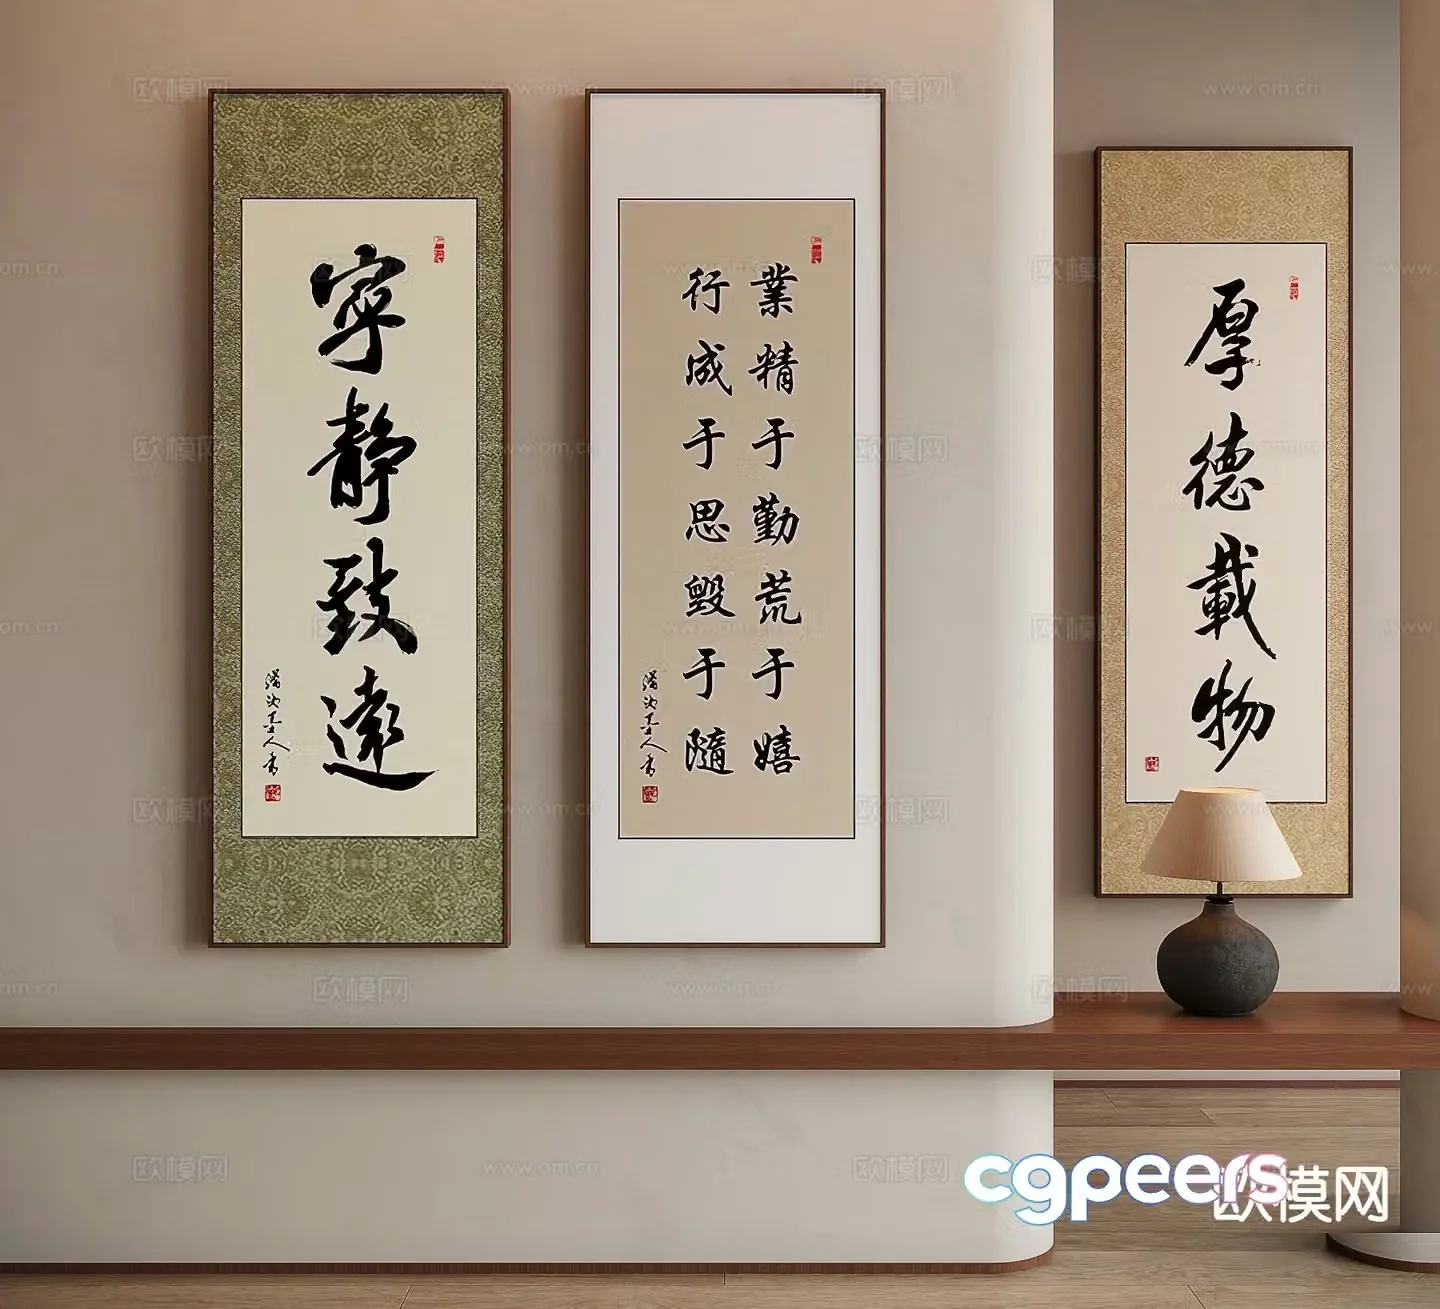 寧靜致遠
業精于勤荒于嬉
行成于思毀于隨
厚德載物
cgpeers
欧模网
www.om.cn